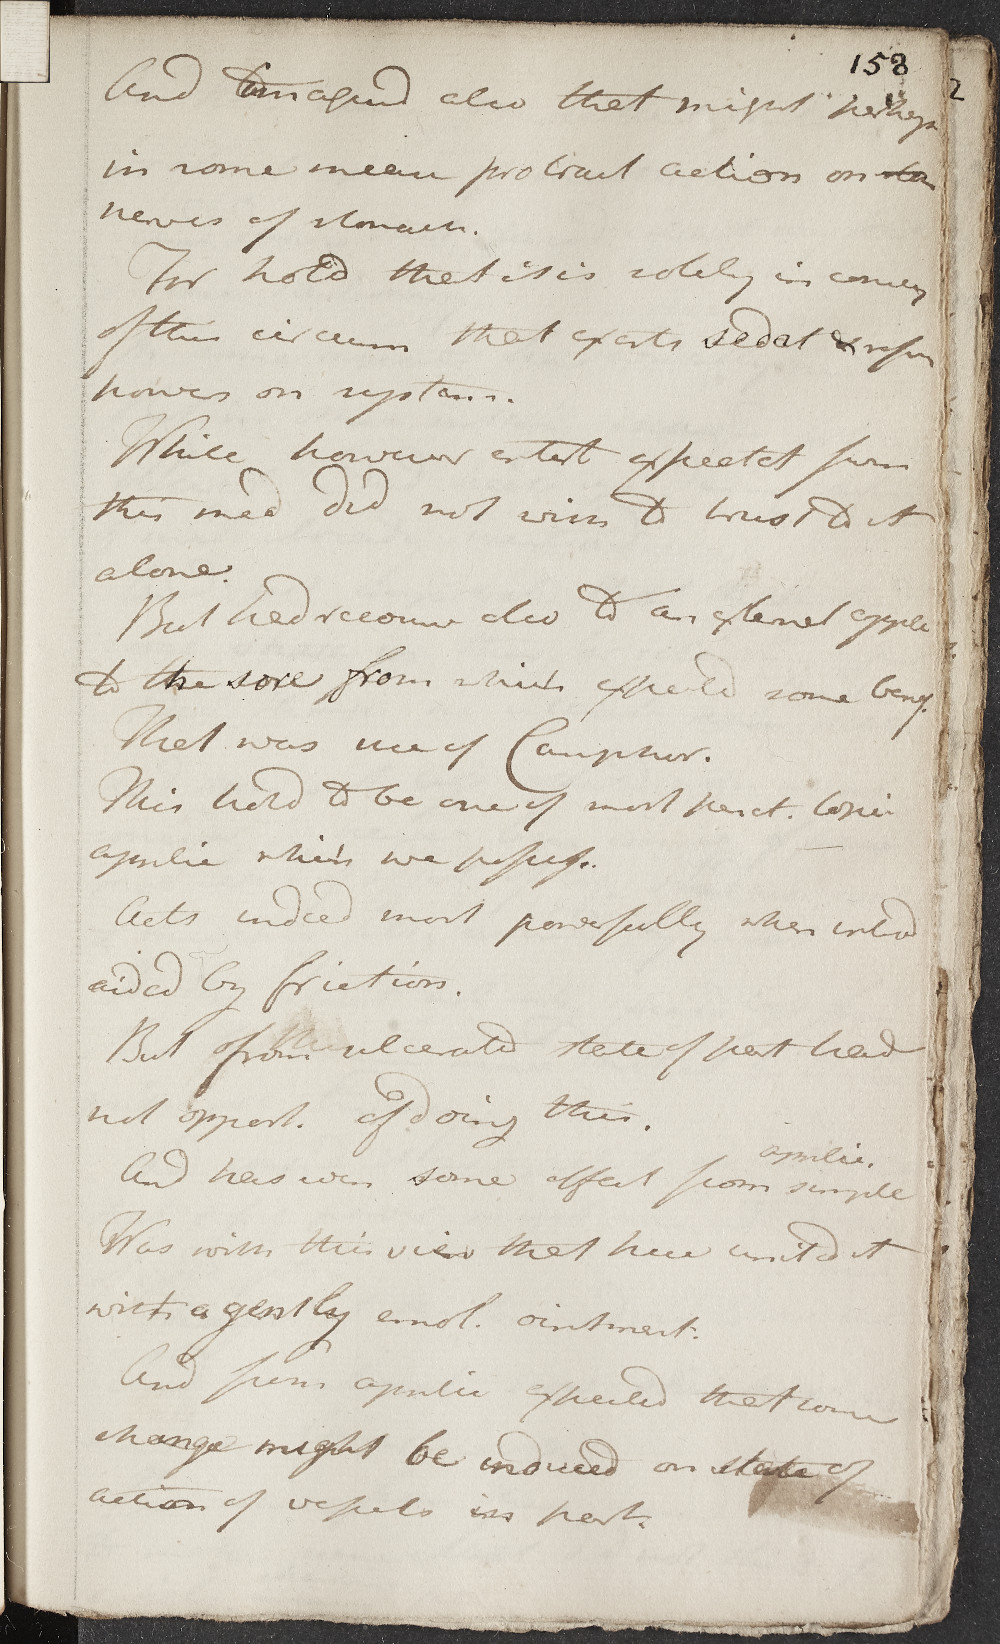 158
And imagined also that might perhaps
in some meau protract action on
nerves of stomach.
For hold that it is solely in conseq
of this circum that exerts sedat &
powers on system.
While however extent expectat from
this med did not wish to trust to it
alone.
But had recourse also to an external applic
to the sore from which expected some benef.
That was use of Camphor.
This hold to be one of most perct. topic
applic which we possess.
Acts indeed most powerfully when introd
aided by friction.
But from ulcerated state of part head
not opport. of doing this.
And has even some effect from simple applic.
Was with this view that here united it
with a gently emol. ointment.
And from applic expected that some
change might be induced on state of
action of vessels in part.